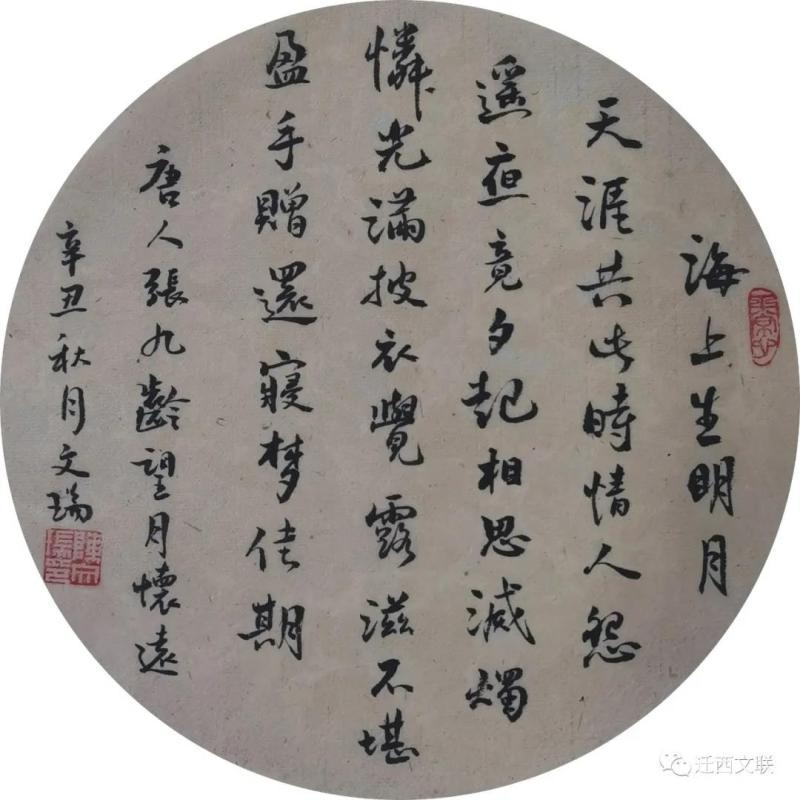 海上生明月
天涯共此時情人怨
遥夜竟夕起相思滅燭
憐光滿披衣覺露滋不堪
盈手贈還寢梦佳期
唐人張九齡望月懷遠
辛丑秋月文瑞
迁西文联